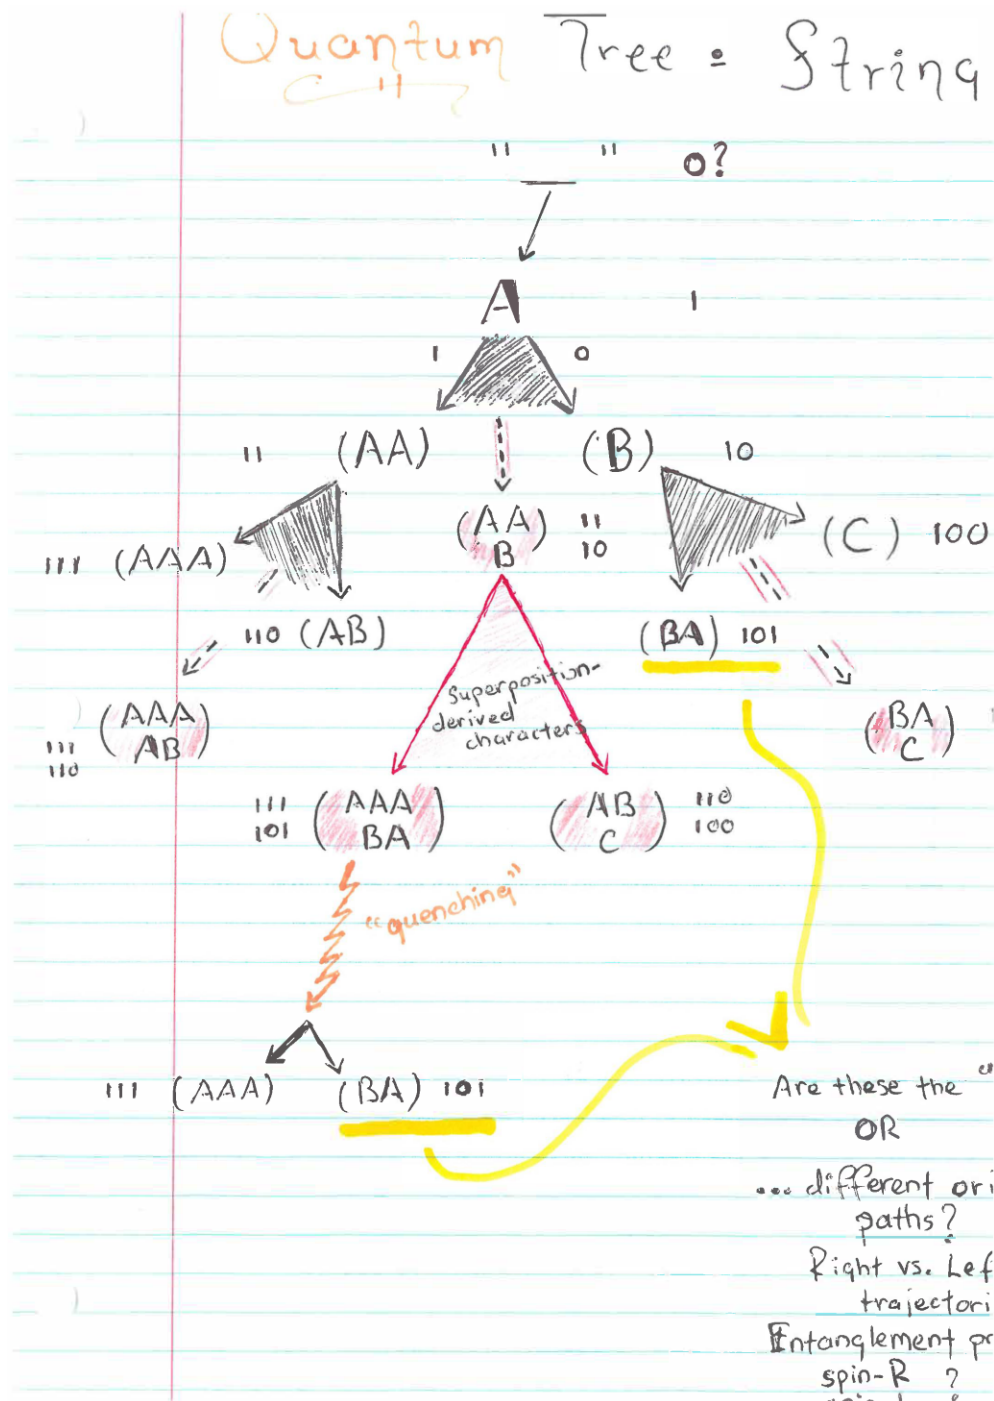 Quantum Tree = String
" " 0?
A 1
1 0
11 (AA) (B) 10
(AA B) 11 10
(C) 100
111 (AAA)
110 (AB)
(BA) 101
Superposition-
derived
characters
(AAA AB) 111 110
(BA C)
111 101 (AAA BA)
(AB C) 110 100
"quenching"
111 (AAA) (BA) 101
Are these the "
OR
... different ori
paths?
Right vs. Lef
trajectori
Entanglement pr
spin-R ?